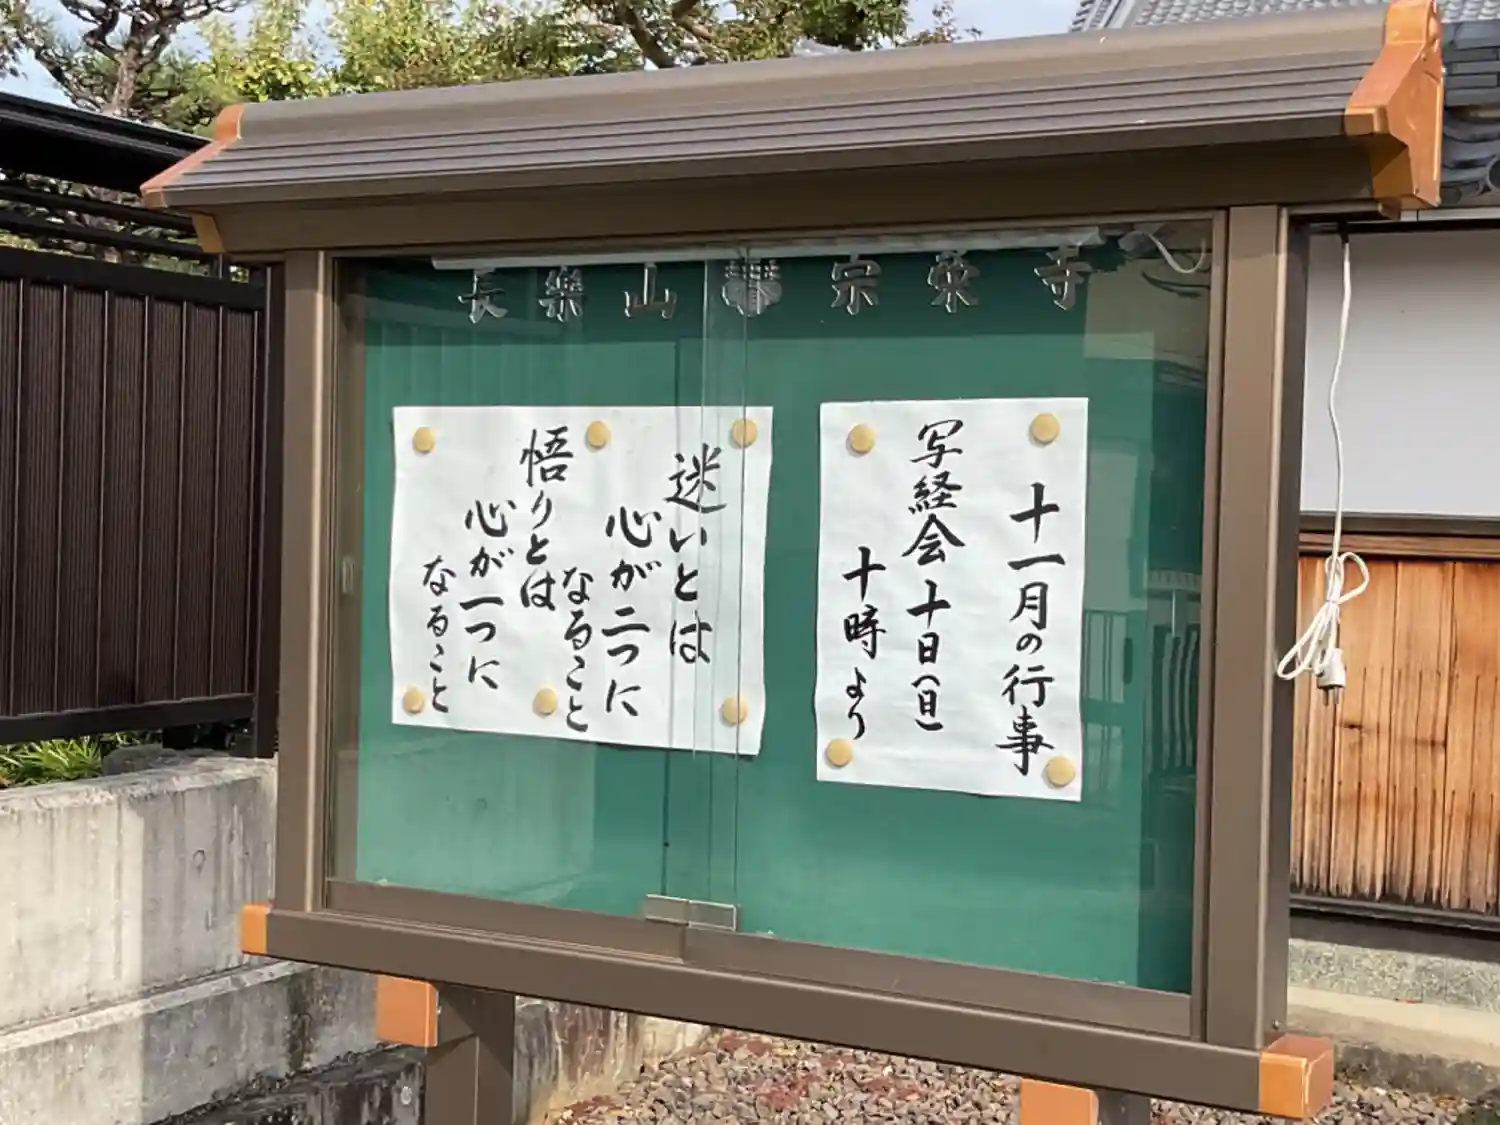 長樂山 宗栄寺
十一月の行事
写経会 十日(日)
十時より
迷いとは
心が二つに
なること
悟りとは
心が一つに
なること